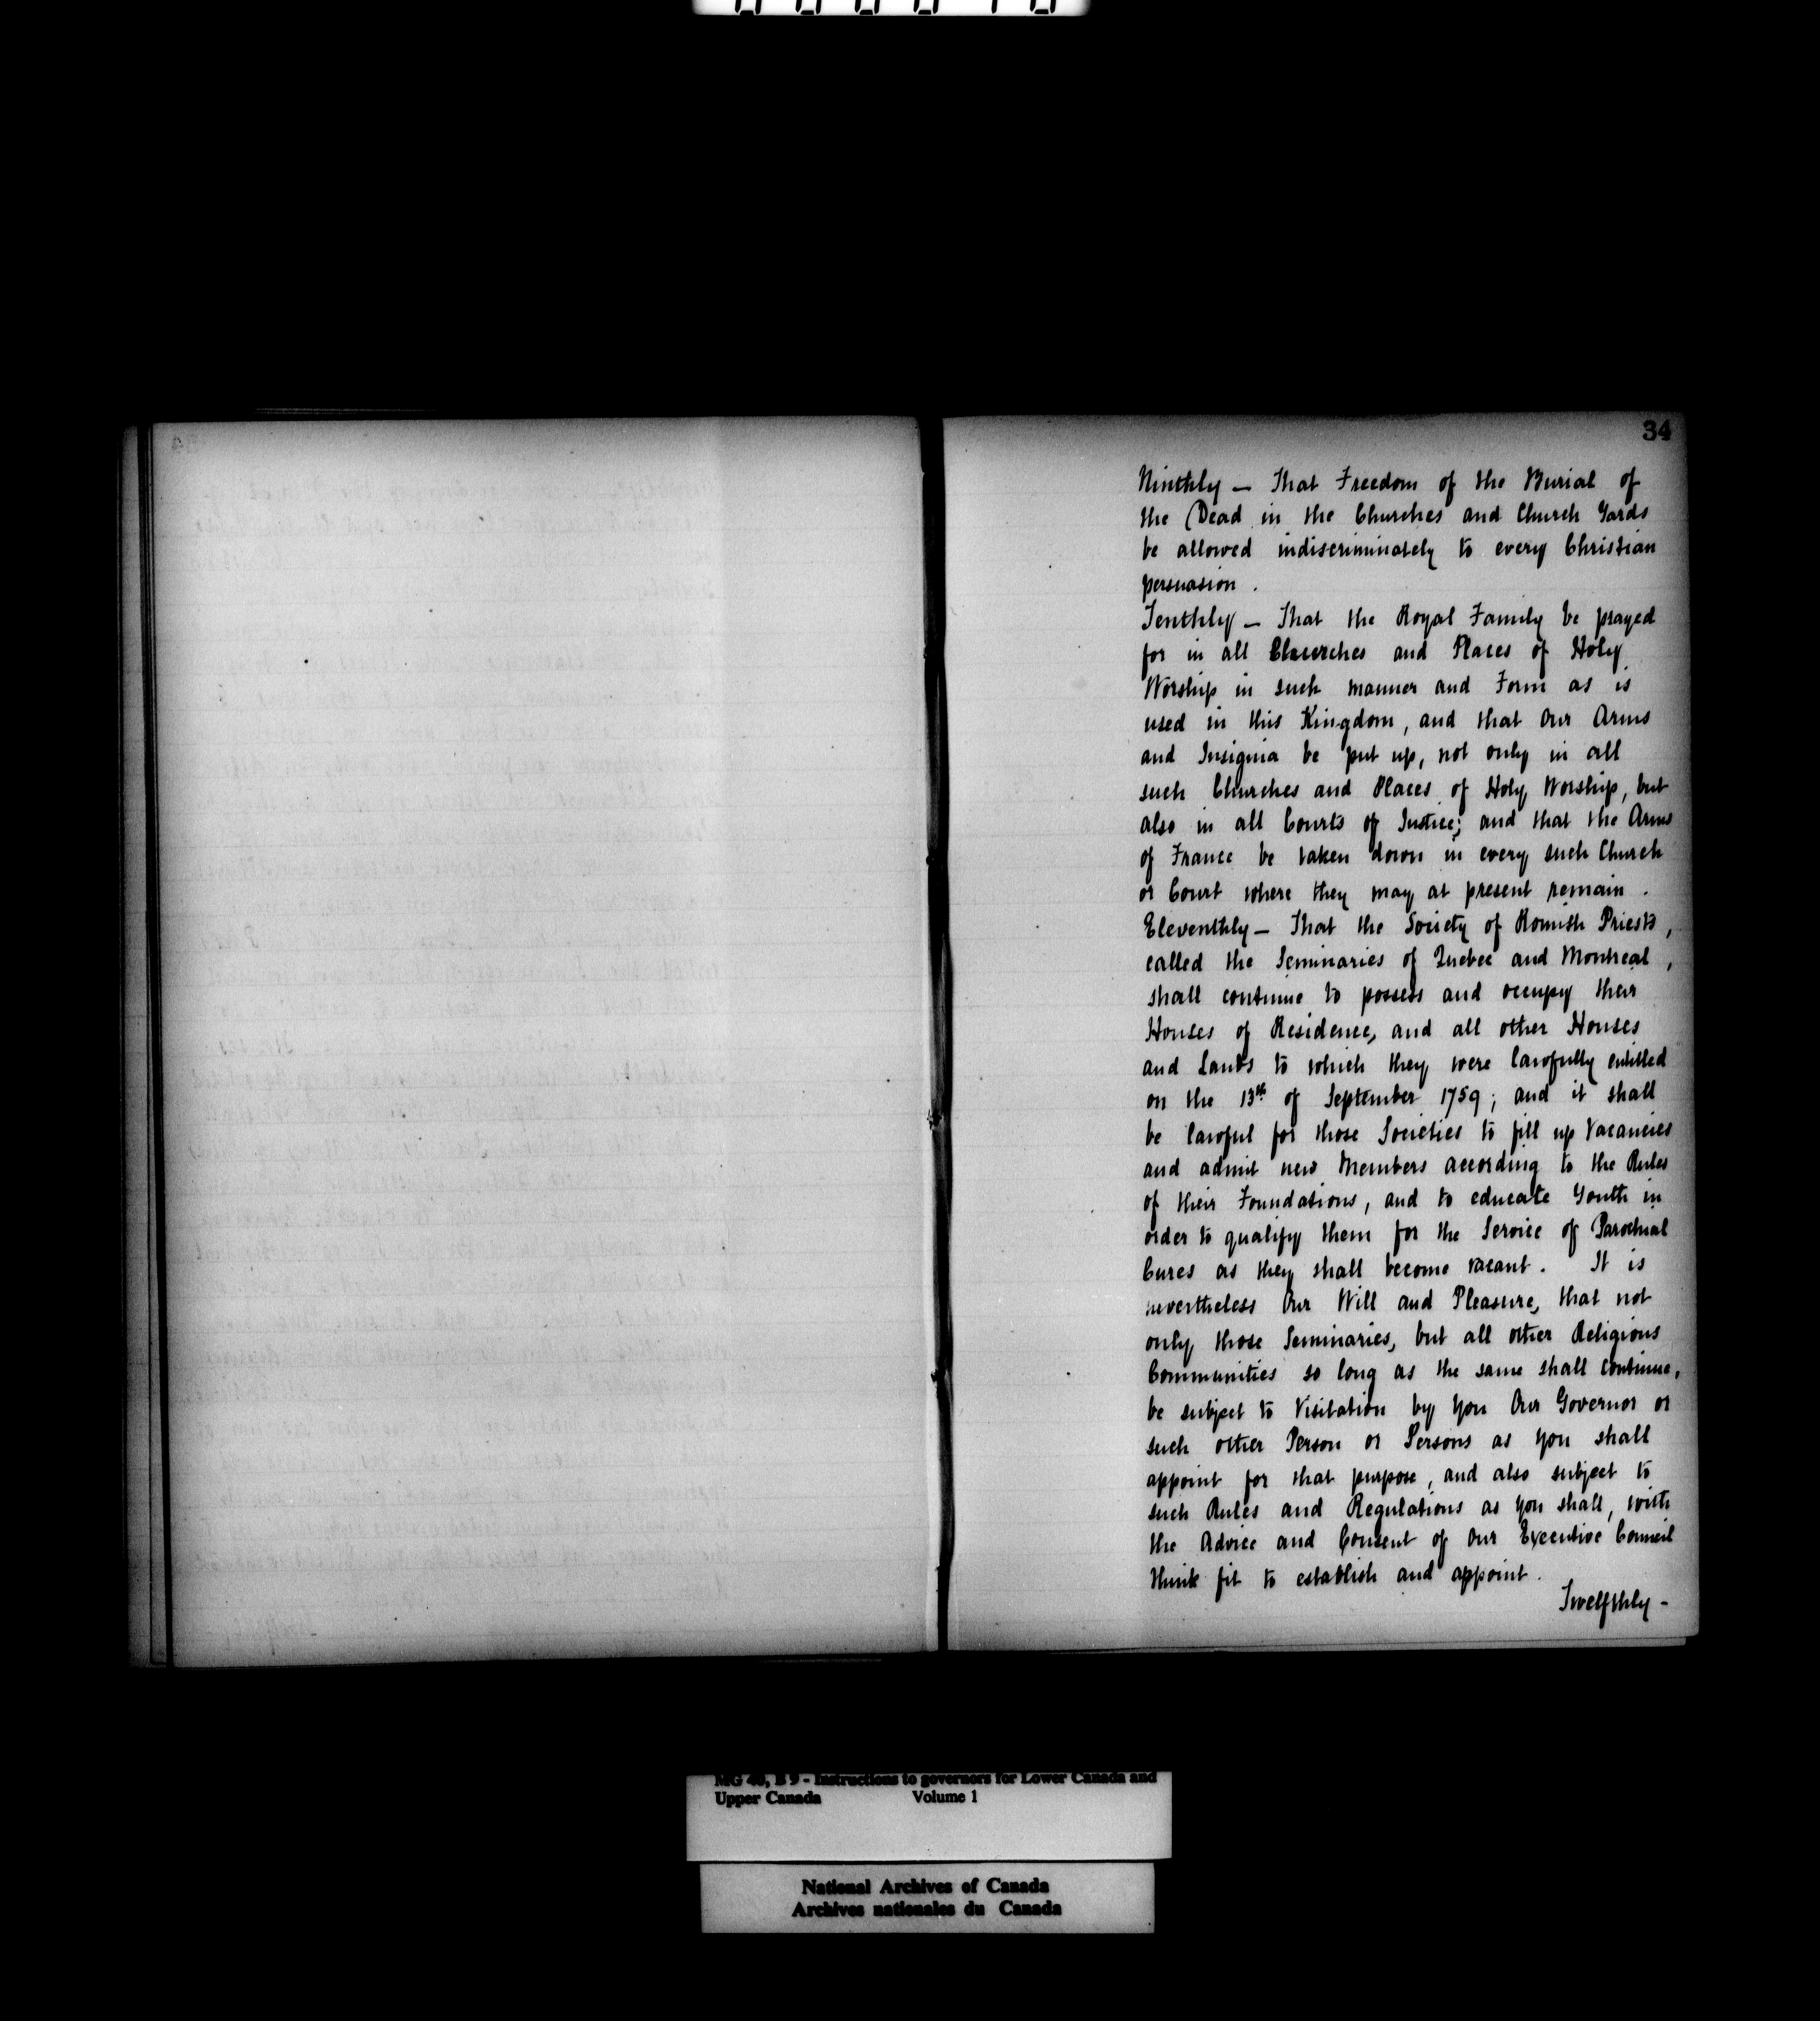 34
Ninthly — That Freedom of the Burial of
the Dead in the Churches and Church Yards
be allowed indiscriminately to every Christian
persuasion.
Tenthly — That the Royal Family be prayed
for in all Churches and Places of Holy
Worship in such manner and Form as is
used in this Kingdom, and that our Arms
and Insignia be put up, not only in all
such Churches and Places of Holy Worship, but
also in all Courts of Justice; and that the Arms
of France be taken down in every such Church
or Court where they may at present remain.
Eleventhly — That the Society of Romish Priests,
called the Seminaries of Quebec and Montreal,
shall continue to possess and occupy their
Houses of Residence, and all other Houses
and Lands to which they were lawfully entitled
on the 13th of September 1759; and it shall
be lawful for those Societies to fill up Vacancies
and admit new Members according to the Rules
of their Foundations, and to educate Youth in
order to qualify them for the Service of Parochial
Cures as they shall become vacant. It is
nevertheless Our Will and Pleasure, that not
only those Seminaries, but all other Religious
Communities so long as the same shall continue,
be subject to Visitation by you Our Governor or
such other Person or Persons as you shall
appoint for that purpose, and also subject to
such Rules and Regulations as you shall, with
the Advice and Consent of our Executive Council
think fit to establish and appoint.
Twelfthly -
MG 40, B 9 - Instructions to governors for Lower Canada and
Upper Canada Volume 1
National Archives of Canada
Archives nationales du Canada